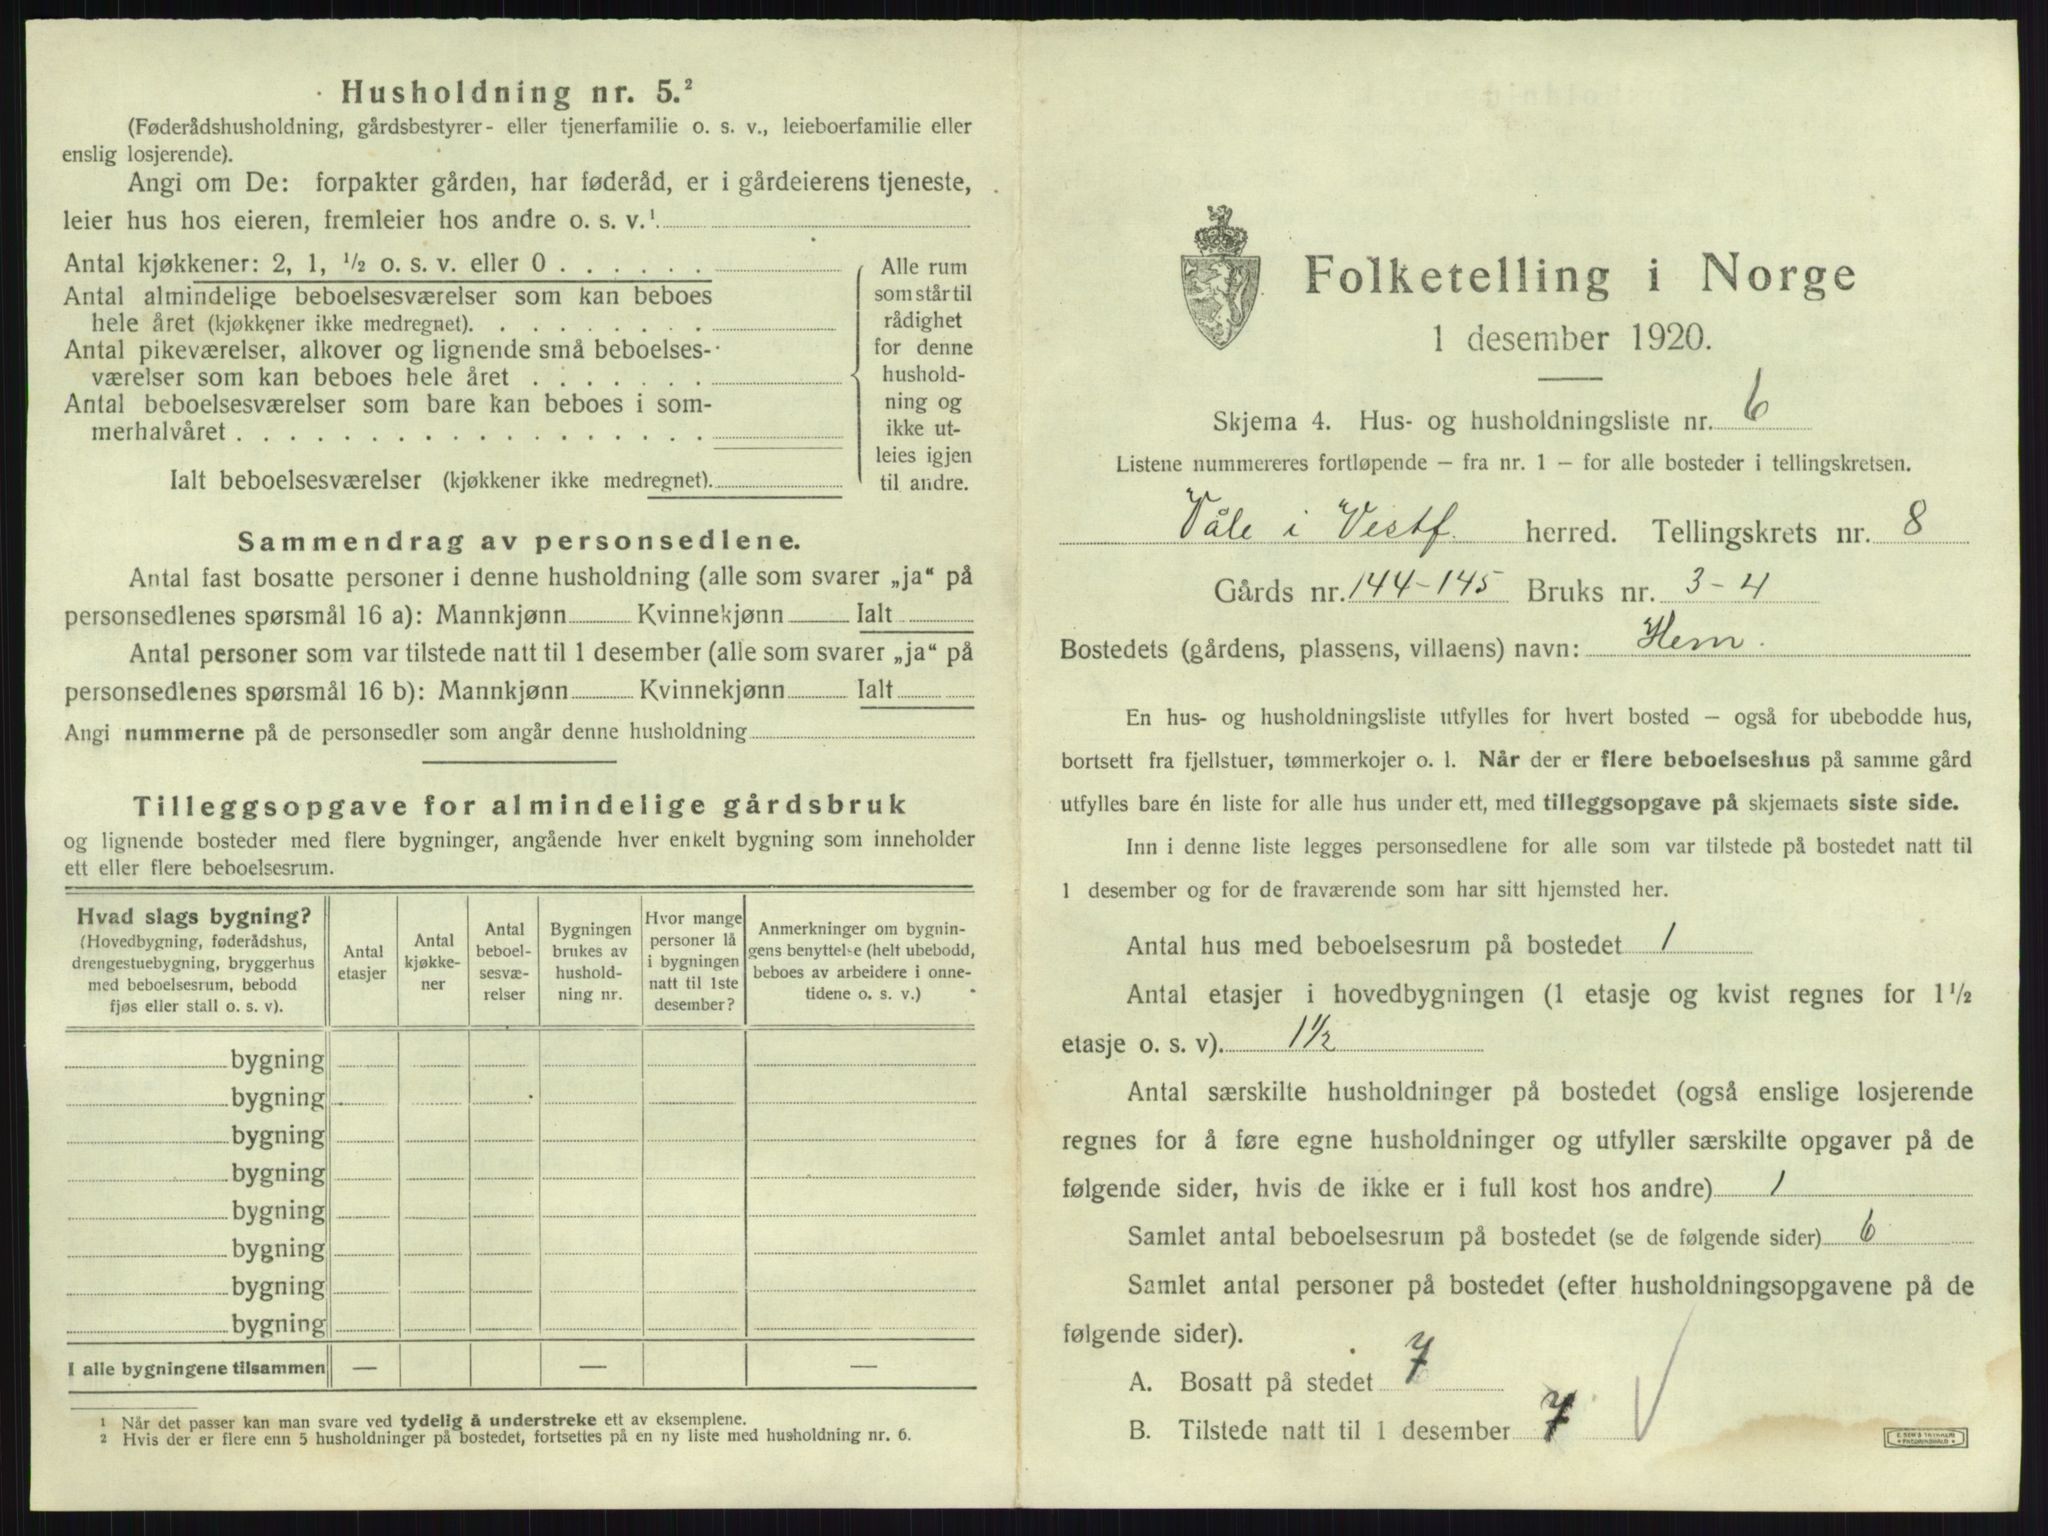 Husholdning nr. 5.²
(Føderådshusholdning, gårdsbestyrer- eller tjenerfamilie o. s. v., leieboerfamilie eller
enslig losjerende).
Angi om De: forpakter gården, har føderåd, er i gårdeierens tjeneste,
leier hus hos eieren, fremleier hos andre o. s. v.¹
Antal kjøkkener: 2, 1, ½ o. s. v. eller 0 . . . . . .
Antal almindelige beboelsesværelser som kan beboes
hele året (kjøkkener ikke medregnet). . . . . . . . .
Antal pikeværelser, alkover og lignende små beboelses-
værelser som kan beboes hele året . . . . . . .
Antal beboelsesværelser som bare kan beboes i som-
merhalvåret . . . . . . . . . . . . . . . . . .
Ialt beboelsesværelser (kjøkkener ikke medregnet).
Alle rum
som står til
rådighet
for denne
hushold-
ning og
ikke ut-
leies igjen
til andre.
Sammendrag av personsedlene.
Antal fast bosatte personer i denne husholdning (alle som svarer „ja“ på
personsedlenes spørsmål 16 a): Mannkjønn Kvinnekjønn Ialt
Antal personer som var tilstede natt til 1 desember (alle som svarer „ja“ på
personsedlenes spørsmål 16 b): Mannkjønn Kvinnekjønn Ialt
Angi nummerne på de personsedler som angår denne husholdning
Tilleggsopgave for almindelige gårdsbruk
og lignende bosteder med flere bygninger, angående hver enkelt bygning som inneholder
ett eller flere beboelsesrum.
Hvad slags bygning?
(Hovedbygning, føderådshus,
drengestuebygning, bryggerhus
med beboelsesrum, bebodd
fjøs eller stall o. s. v).
Antal
etasjer
Antal
kjøkke-
ner
Antal
beboel-
sesvæ-
relser
Bygningen
brukes av
hushold-
ning nr.
Hvor mange
personer lå
i bygningen
natt til 1ste
desember?
Anmerkninger om bygnin-
gens benyttelse (helt ubebodd,
beboes av arbeidere i onne-
tidene o. s. v.)
bygning
bygning
bygning
bygning
bygning
bygning
bygning
bygning
I alle bygningene tilsammen — — —
¹ Når det passer kan man svare ved tydelig å understreke ett av eksemplene.
² Hvis der er flere enn 5 husholdninger på bostedet, fortsettes på en ny liste med husholdning nr. 6.
Folketelling i Norge
1 desember 1920.
Skjema 4. Hus- og husholdningsliste nr. 6
Listene nummereres fortløpende – fra nr. 1 – for alle bosteder i tellingskretsen.
Våle i Vestf. herred. Tellingskrets nr. 8
Gårds nr. 144-145 Bruks nr. 3-4
Bostedets (gårdens, plassens, villaens) navn: Hem.
En hus- og husholdningsliste utfylles for hvert bosted – også for ubebodde hus,
bortsett fra fjellstuer, tømmerkojer o. l. Når der er flere beboelseshus på samme gård
utfylles bare én liste for alle hus under ett, med tilleggsopgave på skjemaets siste side.
Inn i denne liste legges personsedlene for alle som var tilstede på bostedet natt til
1 desember og for de fraværende som har sitt hjemsted her.
Antal hus med beboelsesrum på bostedet 1
Antal etasjer i hovedbygningen (1 etasje og kvist regnes for 1½
etasje o. s. v). 1½
Antal særskilte husholdninger på bostedet (også enslige losjerende
regnes for å føre egne husholdninger og utfyller særskilte opgaver på de
følgende sider, hvis de ikke er i full kost hos andre) 1
Samlet antal beboelsesrum på bostedet (se de følgende sider) 6
Samlet antal personer på bostedet (efter husholdningsopgavene på de
følgende sider).
A. Bosatt på stedet 7
B. Tilstede natt til 1 desember 7